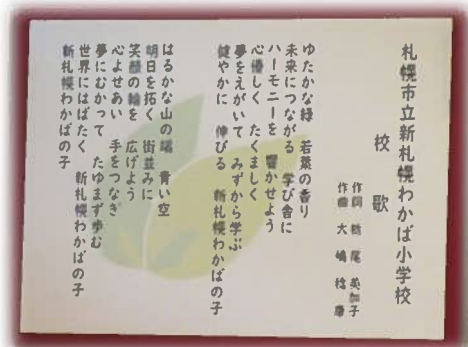 札幌市立新札幌わかば小学校
校歌
作詞 尾 英加子
作曲 大嶋 稔康
ゆたかな緑 若葉の香り
未来につながる 学び舎に
ハーモニーを 響かせよう
心優しく たくましく
夢をえがいて みずから学ぶ
健やかに 伸びる 新札幌わかばの子
はるかな山の端 青い空
明日を拓く 街並みに
笑顔の輪を 広げよう
心よせあい 手をつなぎ
夢にむかって たゆまず歩む
世界にはばたく 新札幌わかばの子
新札幌わかばの子